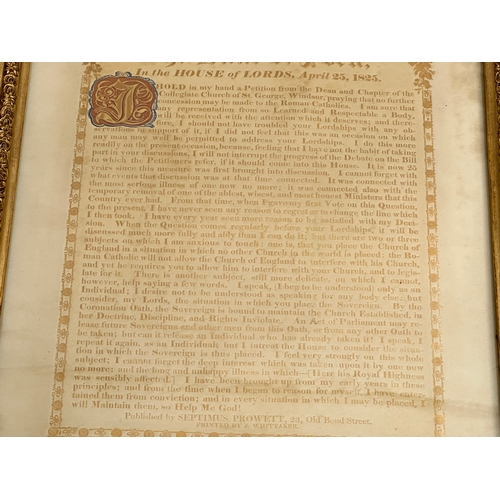 In the HOUSE of LORDS, April 25, 1825.
I HOLD in my hand a Petition from the Dean and Chapter of the
Collegiate Church of St. George, Windsor, praying that no further
Concession may be made to the Roman Catholics. I am sure that
any representation from so Learned and Respectable a Body,
will be received with the attention which it deserves; and there-
fore, I should not have troubled your Lordships with any ob-
servations in support of it, if I did not feel that this was an occasion on which
any man may well be permitted to address your Lordships. I do this more
readily on the present occasion, because, feeling that I have not the habit of taking
part in your discussions, I will not interrupt the progress of the Debate on the Bill
to which the Petitioners refer, if it should come into this House. It is now 25
years since this measure was first brought into discussion. I cannot forget with
what events that discussion was at that time connected. It was connected with
the most serious illness of one now no more; it was connected also with the
temporary removal of one of the ablest, wisest, and most honest Ministers that this
Country ever had. From that time, when I gave my first Vote on this Question,
to the present, I have never seen any reason to regret or to change the line which
I then took. I have every year seen more reason to be satisfied with my Deci-
sion. When the Question comes regularly before your Lordships, it will be
discussed much more fully and ably than I can do it; but there are two or three
subjects on which I am anxious to touch: one is, that you place the Church of
England in a situation in which no other Church in the world is placed: the Ro-
man Catholic will not allow the Church of England to interfere with his Church,
and yet he requires you to allow him to interfere with your Church, and to legis-
late for it. There is another subject, still more delicate, on which I cannot,
however, help saying a few words. I speak, (I beg to be understood) only as an
Individual; I desire not to be understood as speaking for any body else; but
consider, my Lords, the situation in which you place the Sovereign. By the
Coronation Oath, the Sovereign is bound to maintain the Church Established, in
her Doctrine, Discipline, and Rights, Inviolate. An Act of Parliament may re-
lease future Sovereigns and other men from this Oath, or from any other Oath to
be taken; but can it release an Individual who has already taken it? I speak, I
repeat it again, as an Individual; but I intreat the House to consider the situa-
tion in which the Sovereign is thus placed. I feel very strongly on this whole
subject; I cannot forget the deep interest which was taken upon it by one now
no more; and the long and unhappy illness in which—[Here his Royal Highness
was sensibly affected.] I have been brought up from my early years in these
principles; and from the time when I began to reason for myself, I have enter-
tained them from conviction; and in every situation in which I may be placed, I
will Maintain them, so Help Me God!
Published by SEPTIMUS PROWETT, 23, Old Bond Street.
PRINTED BY J. WHITTAKER.